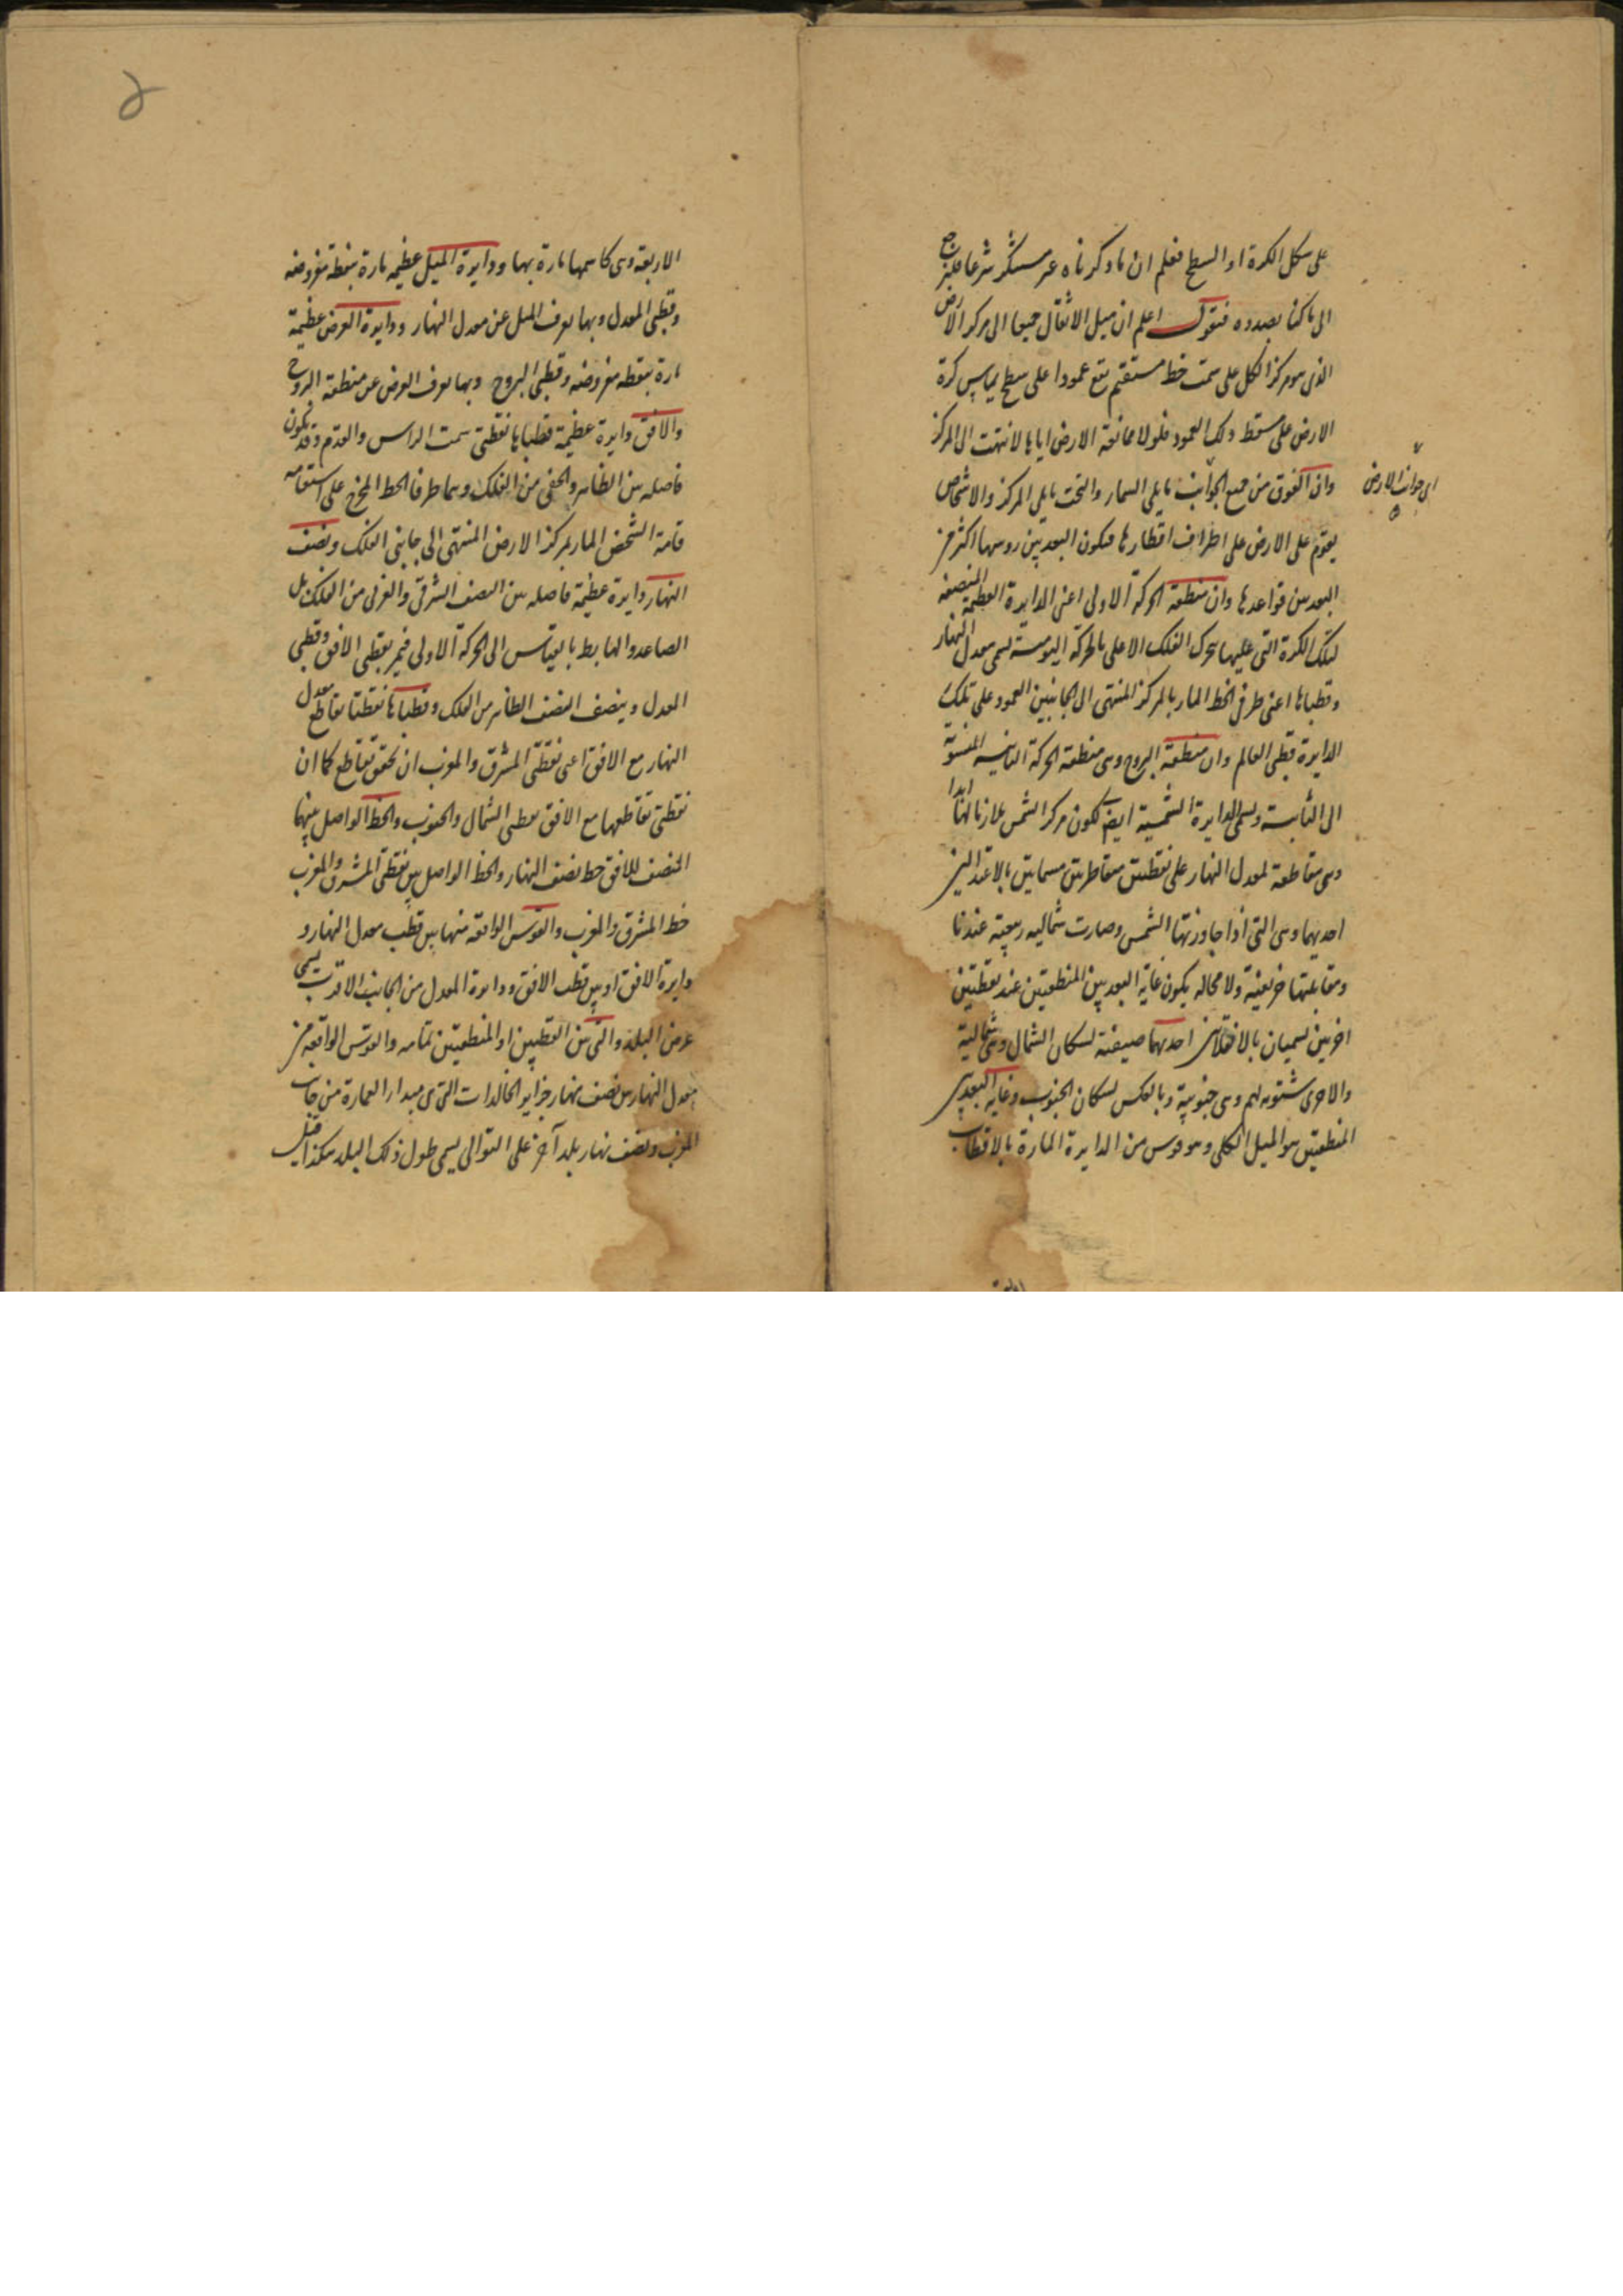 على شكل الكرة او السطح فعلم ان ما ذكرناه غير مستنكر شرعا فلنرجع
الى ما كنا بصدده فنقول اعلم ان ميل الاثقال جميعا الى مركز الارض
الذى هو مركز الكل على سمت خط مستقيم يقع عمودا على سطح يماس كرة
الارض على مسقط ذلك العمود فلولا ممانعة الارض اياها لانتهت الى المركز
وان الفوق من جميع الجوانب ما يلى السماء والتحت ما يلى المركز والاشخاص
اى جوانب الارض
يقوم على الارض على اطراف اقطارها فيكون البعد بين روسها اكثر من
البعد بين قواعدها وان منطقة الحركة الاولى اعنى الدايرة العظيمة المنصفه
لتلك الكرة التى عليها يتحرك الفلك الاعلى بالحركة اليوميه تسمى معدل النهار
وقطباها اعنى طرفى الخط المار بالمركز المنتهى الى الجانبين العمود على تلك
الدايرة قطبى العالم وان منطقة البروج وهى منطقة الحركة الثانيه المنسوبة
الى الثامنة وتسمى الدايرة الشمسية ايضا لكون مركز الشمس ملازما لها ابدا
وهى مقاطعة لمعدل النهار على نقطتين متقاطرتين مسماتين بالاعتدالين
احديهما وهى التى اذا جاوزتها الشمس وصارت شماليه ربيعية عندنا
ومقابلتها خريفية ولا محاله يكون غاية البعد بين المنطقتين عند نقطتين
اخريين تسميان بالانقلابين احديهما صيفية لسكان الشمال وهى شمالية
والاخرى شتويه لهم وهى جنوبية وبالعكس لسكان الجنوب وغاية البعد بين
المنطقتين هو الميل الكلى وهو قوس من الدايرة المارة بالاقطاب
الاربعة وهى كاسمها مارة بها ودايرة الميل عظيمه مارة بنقطه مفروضه
وقطبى المعدل وبها يعرف الميل عن معدل النهار ودايرة العرض عظيمة
مارة بنقطه مفروضه وقطبى البروج وبها يعرف العرض عن منطقة البروج
والافق دايرة عظيمة قطباها نقطتى سمت الراس والقدم وقد تكون
فاصله بين الظاهر والخفى من الفلك وهما طرفا الخط المخرج على استقامه
قامة الشخص المار بمركز الارض المنتهى الى جانبى الفلك ونصف
النهار دايرة عظيمة فاصله بين النصف الشرقى والغربى من الفلك بل
الصاعد والهابط بالقياس الى الحركة الاولى فيمر بقطبى الافق وقطبى
المعدل وينصف النصف الظاهر من الفلك وقطباها نقطتا تقاطع معدل
النهار مع الافق اعنى نقطتى المشرق والمغرب ان تحقق تقاطع كما ان
نقطتى تقاطعها مع الافق نقطتى الشمال والجنوب والخط الواصل بينهما
المنصف للافق خط نصف النهار والخط الواصل بين نقطتى المشرق والمغرب
خط المشرق والمغرب والقوس الواقعه منها بين قطب معدل النهار و
دايرة الافق او بين قطب الافق ودايرة المعدل من الجانب الاقرب يسمى
عرض البلد والتى بين القطبين او المنطقتين تمامه والقوس الواقعه من
معدل النهار بين نصف نهار جزاير الخالدات التى هى مبدا العمارة من جانب
المغرب ونصف نهار بلد آخر على التوالى يسمى طول ذلك البلد هكذا قيل